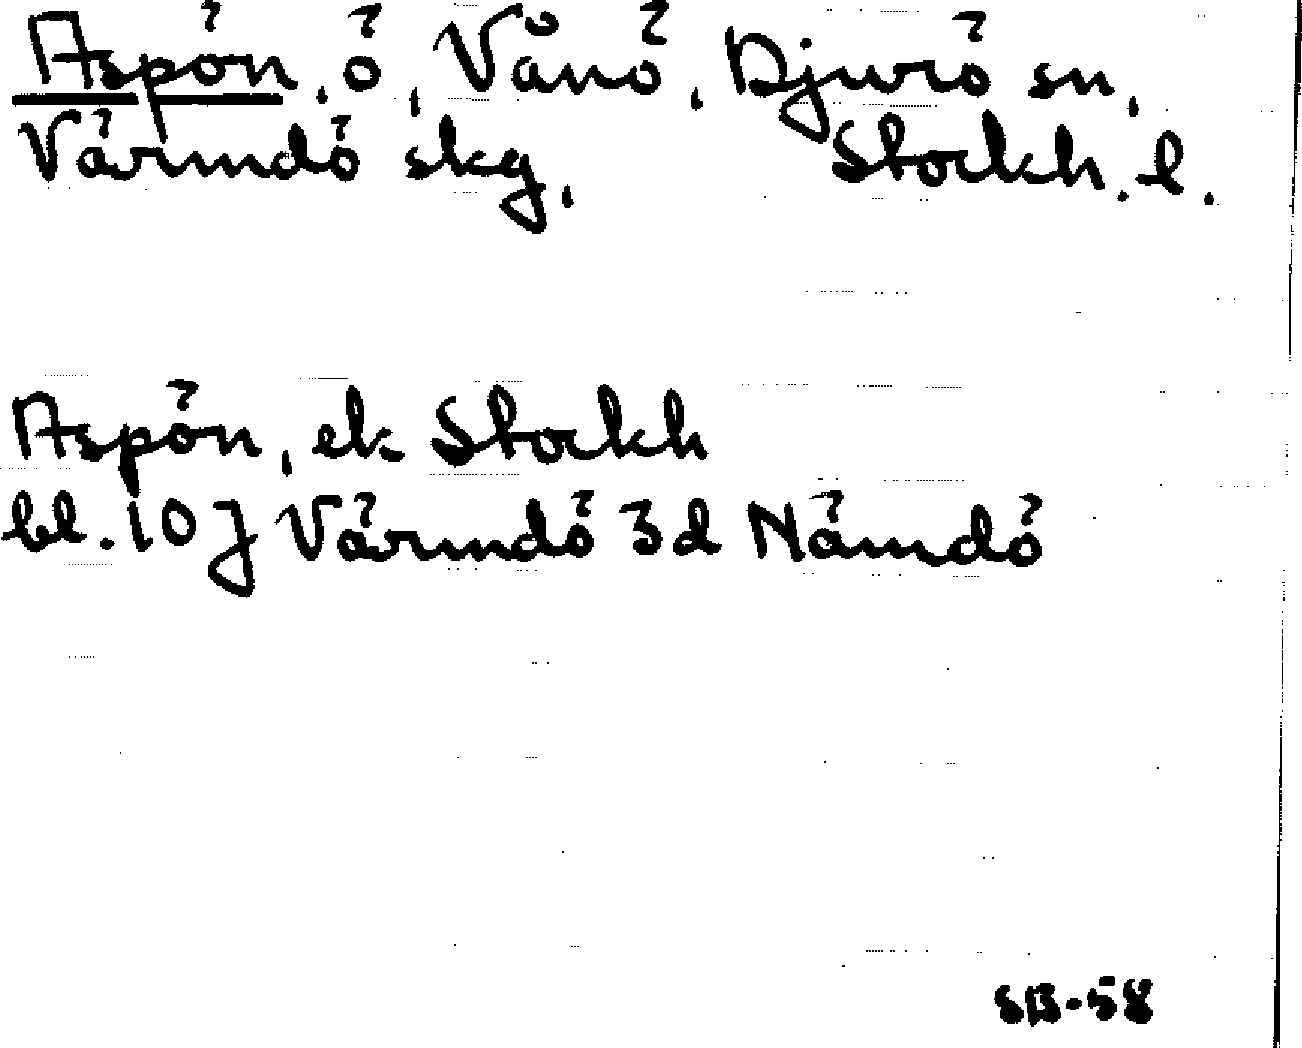 Aspön, ö, Vånö, Djurö sn,
Värmdö skg, Stockh. l.
Aspön, ek Stockh
bl. 10 J Värmdö 3d Nämdö
SB-58